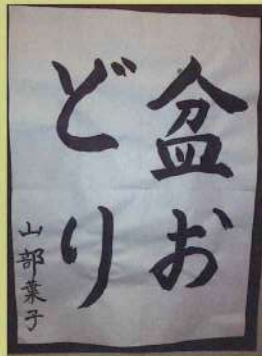 盆お
どり
山部葉子